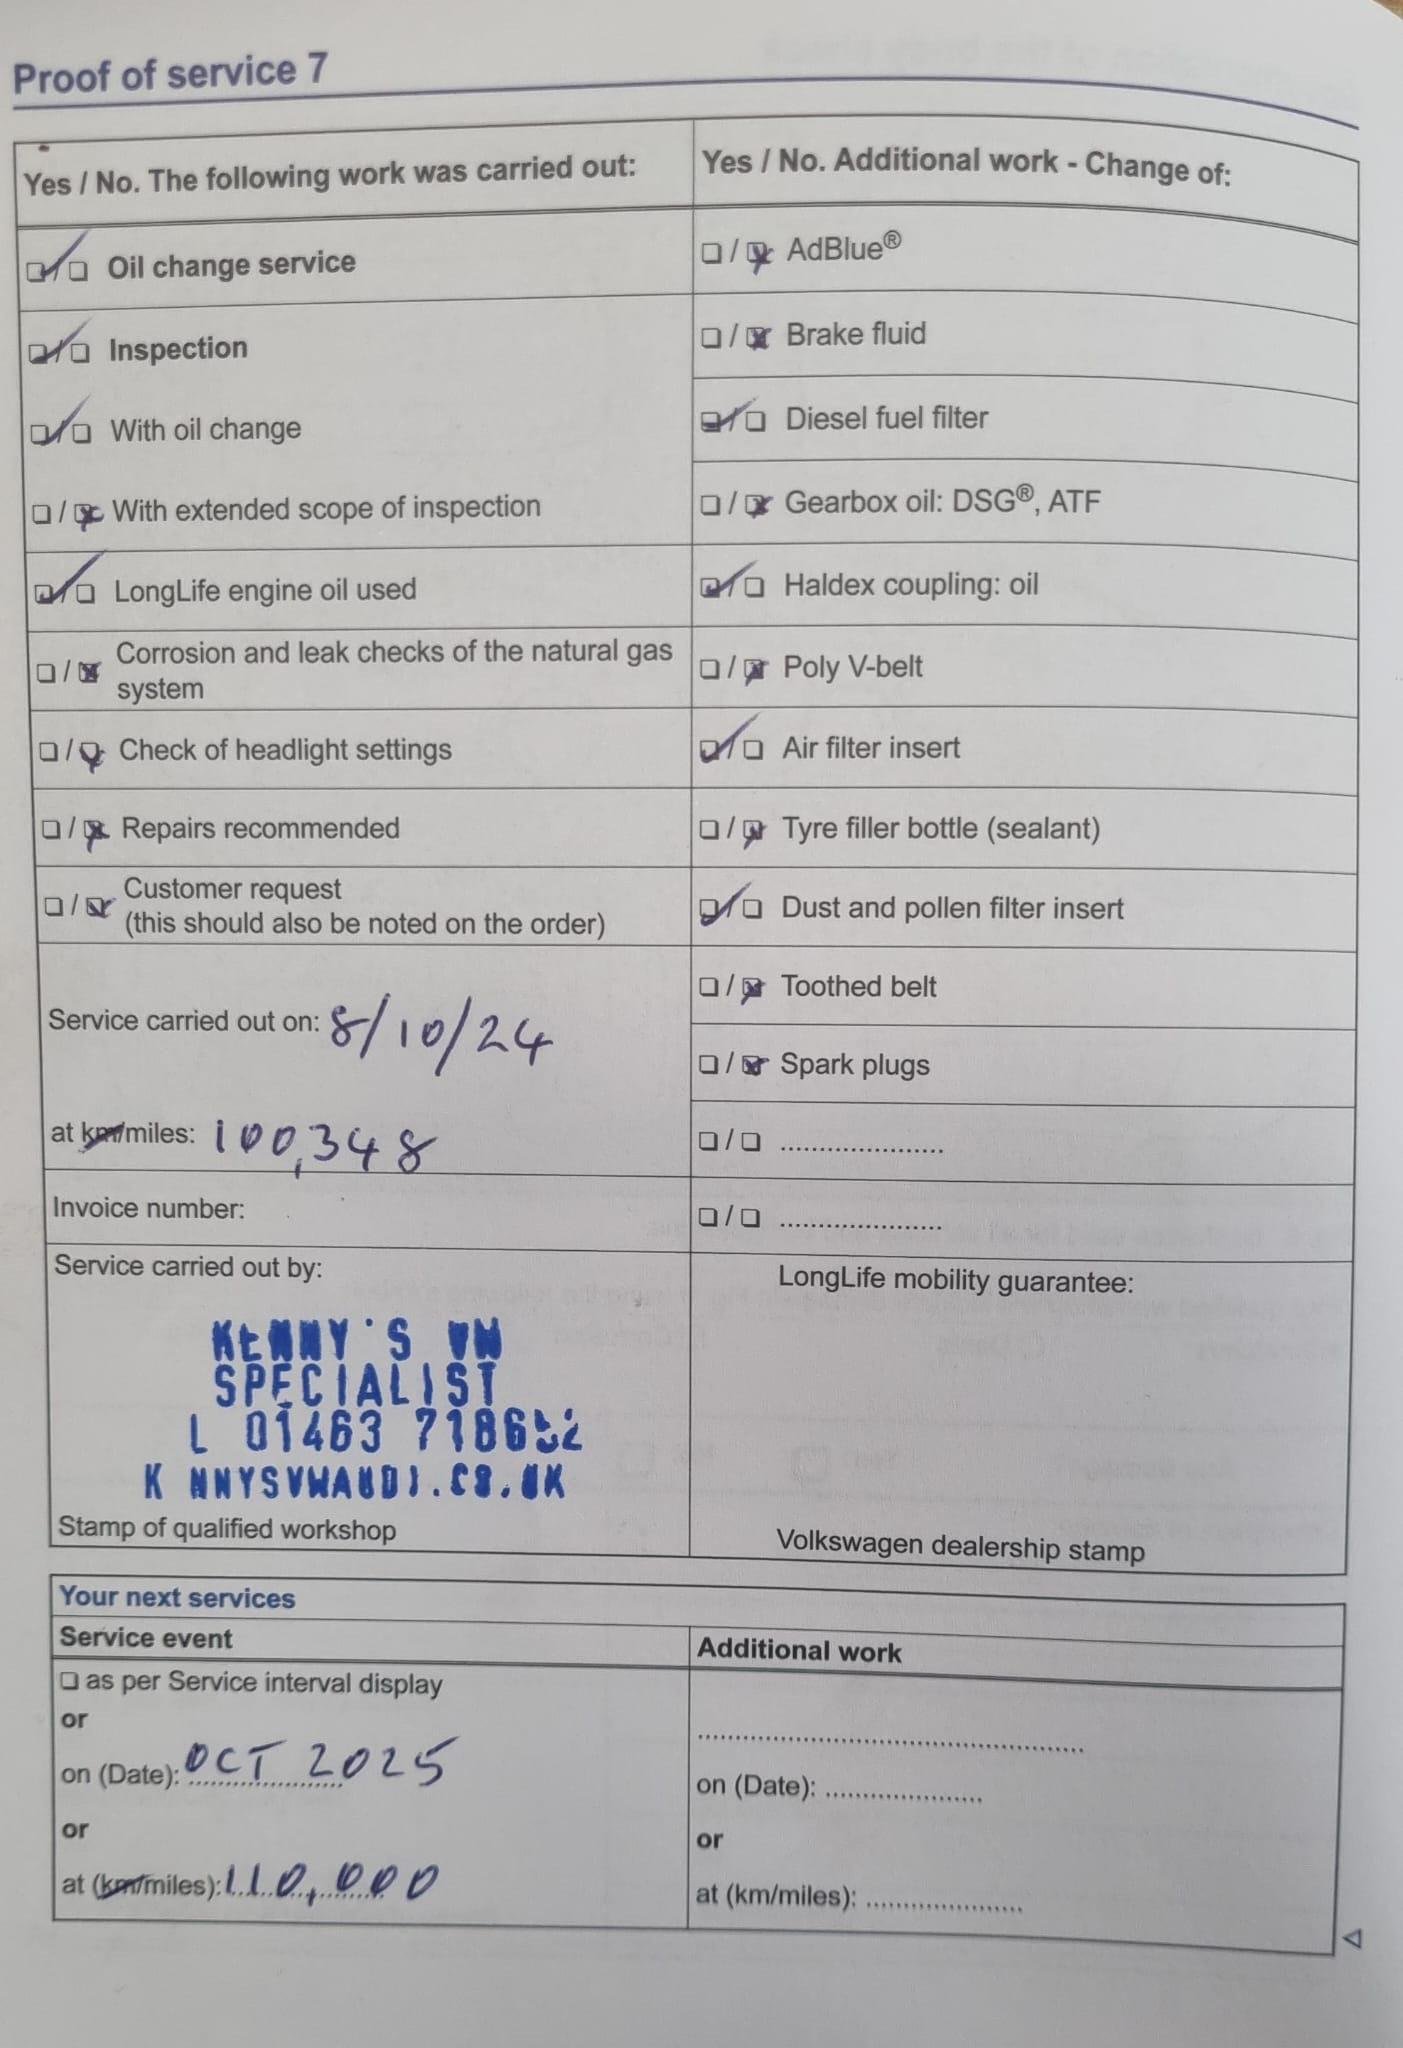 Proof of service 7
Yes / No. The following work was carried out:
Oil change service
Inspection
With oil change
With extended scope of inspection
LongLife engine oil used
Corrosion and leak checks of the natural gas
system
Check of headlight settings
Repairs recommended
Customer request
(this should also be noted on the order)
Service carried out on: 8/10/24
at km/miles: 100,348
Invoice number:
Service carried out by:
KENNY'S VW
SPECIALIST
L 01463 718652
K NNYSVWAUDI.CO.UK
Stamp of qualified workshop
Yes / No. Additional work - Change of:
AdBlue®
Brake fluid
Diesel fuel filter
Gearbox oil: DSG®, ATF
Haldex coupling: oil
Poly V-belt
Air filter insert
Tyre filler bottle (sealant)
Dust and pollen filter insert
Toothed belt
Spark plugs
LongLife mobility guarantee:
Volkswagen dealership stamp
Your next services
Service event
as per Service interval display
or
on (Date): OCT 2025
or
at (km/miles): 110,000
Additional work
on (Date):
or
at (km/miles):